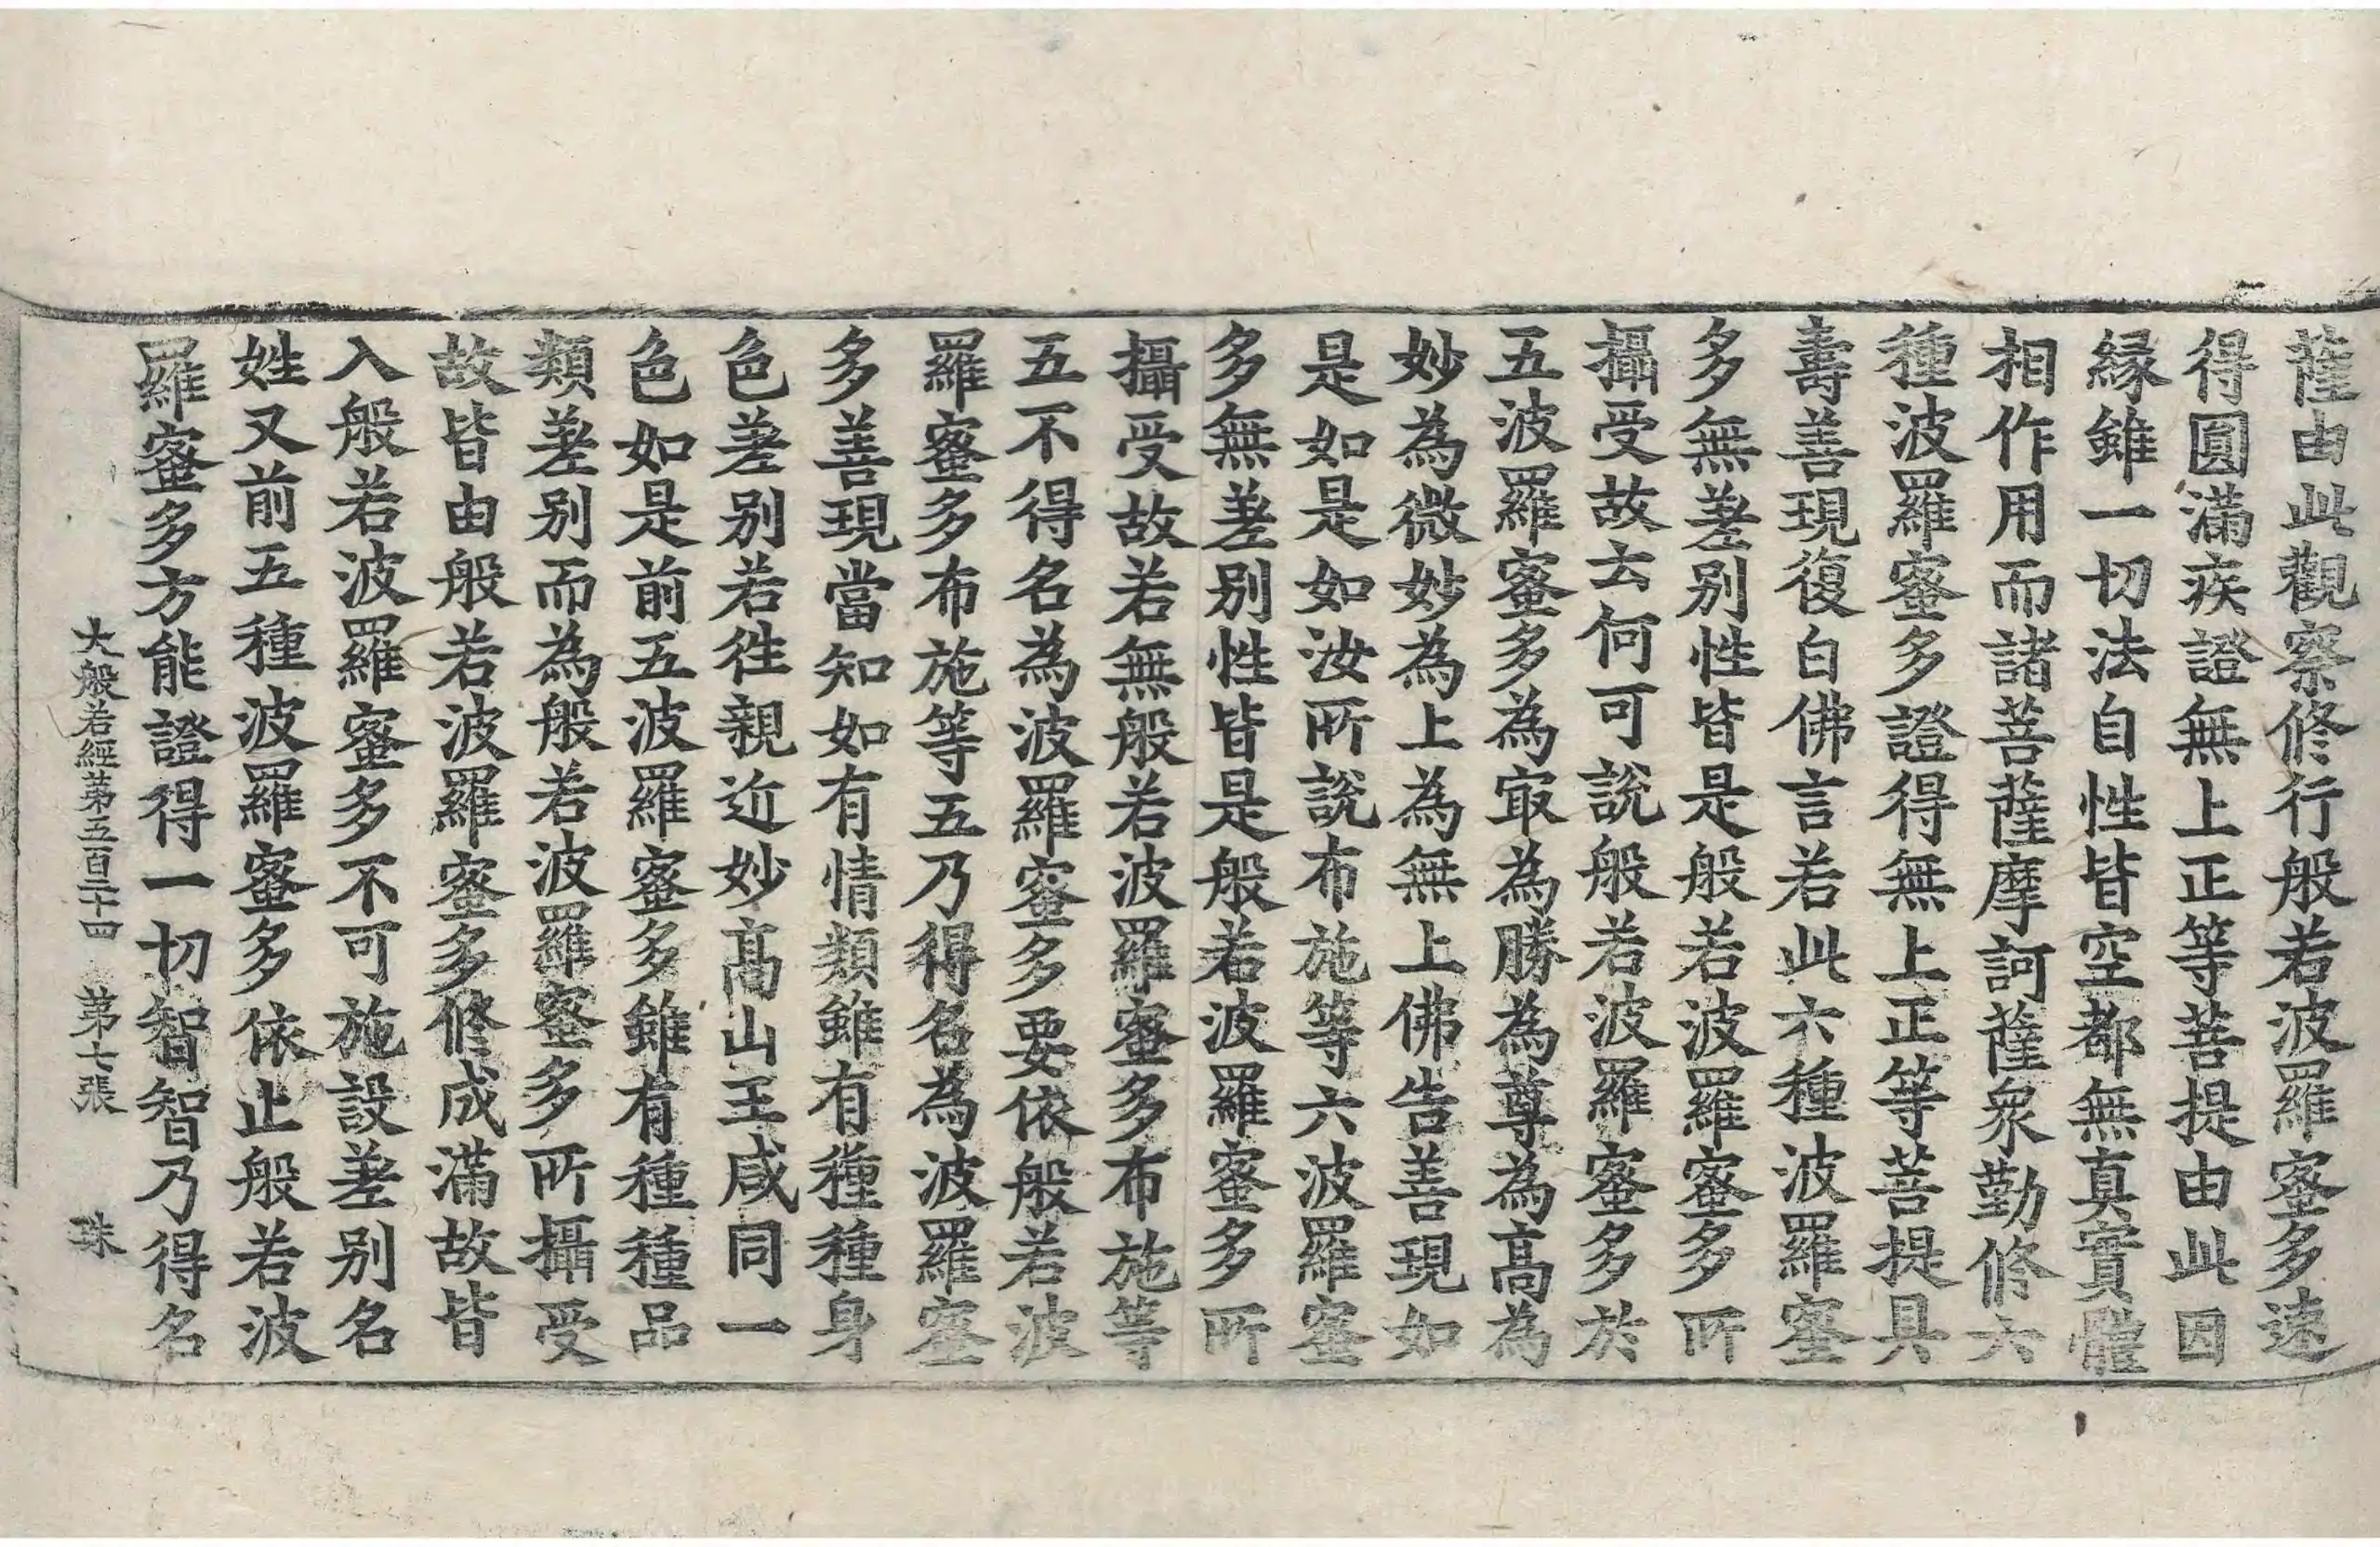 薩由此觀察修行般若波羅蜜多速
得圓滿疾證無上正等菩提由此因
緣雖一切法自性皆空都無真實體
相作用而諸菩薩摩訶薩衆勤修六
種波羅蜜多證得無上正等菩提具
壽善現復白佛言若此六種波羅蜜
多無差別性皆是般若波羅蜜多所
攝受故云何可說般若波羅蜜多於
五波羅蜜多為㝡為勝為尊為髙為
妙為微妙為上為無上佛告善現如
是如是如汝所說布施等六波羅蜜
多無差別性皆是般若波羅蜜多所
攝受故若無般若波羅蜜多布施等
五不得名為波羅蜜多要依般若波
羅蜜多布施等五乃得名為波羅蜜
多善現當知如有情類雖有種種身
色差別若往親近妙髙山王咸同一
色如是前五波羅蜜多雖有種種品
類差別而為般若波羅蜜多所攝受
故皆由般若波羅蜜多修成滿故皆
入般若波羅蜜多不可施設差別名
姓又前五種波羅蜜多依止般若波
羅蜜多方能證得一切智智乃得名
大般若經苐五百二十四 苐七張 珠